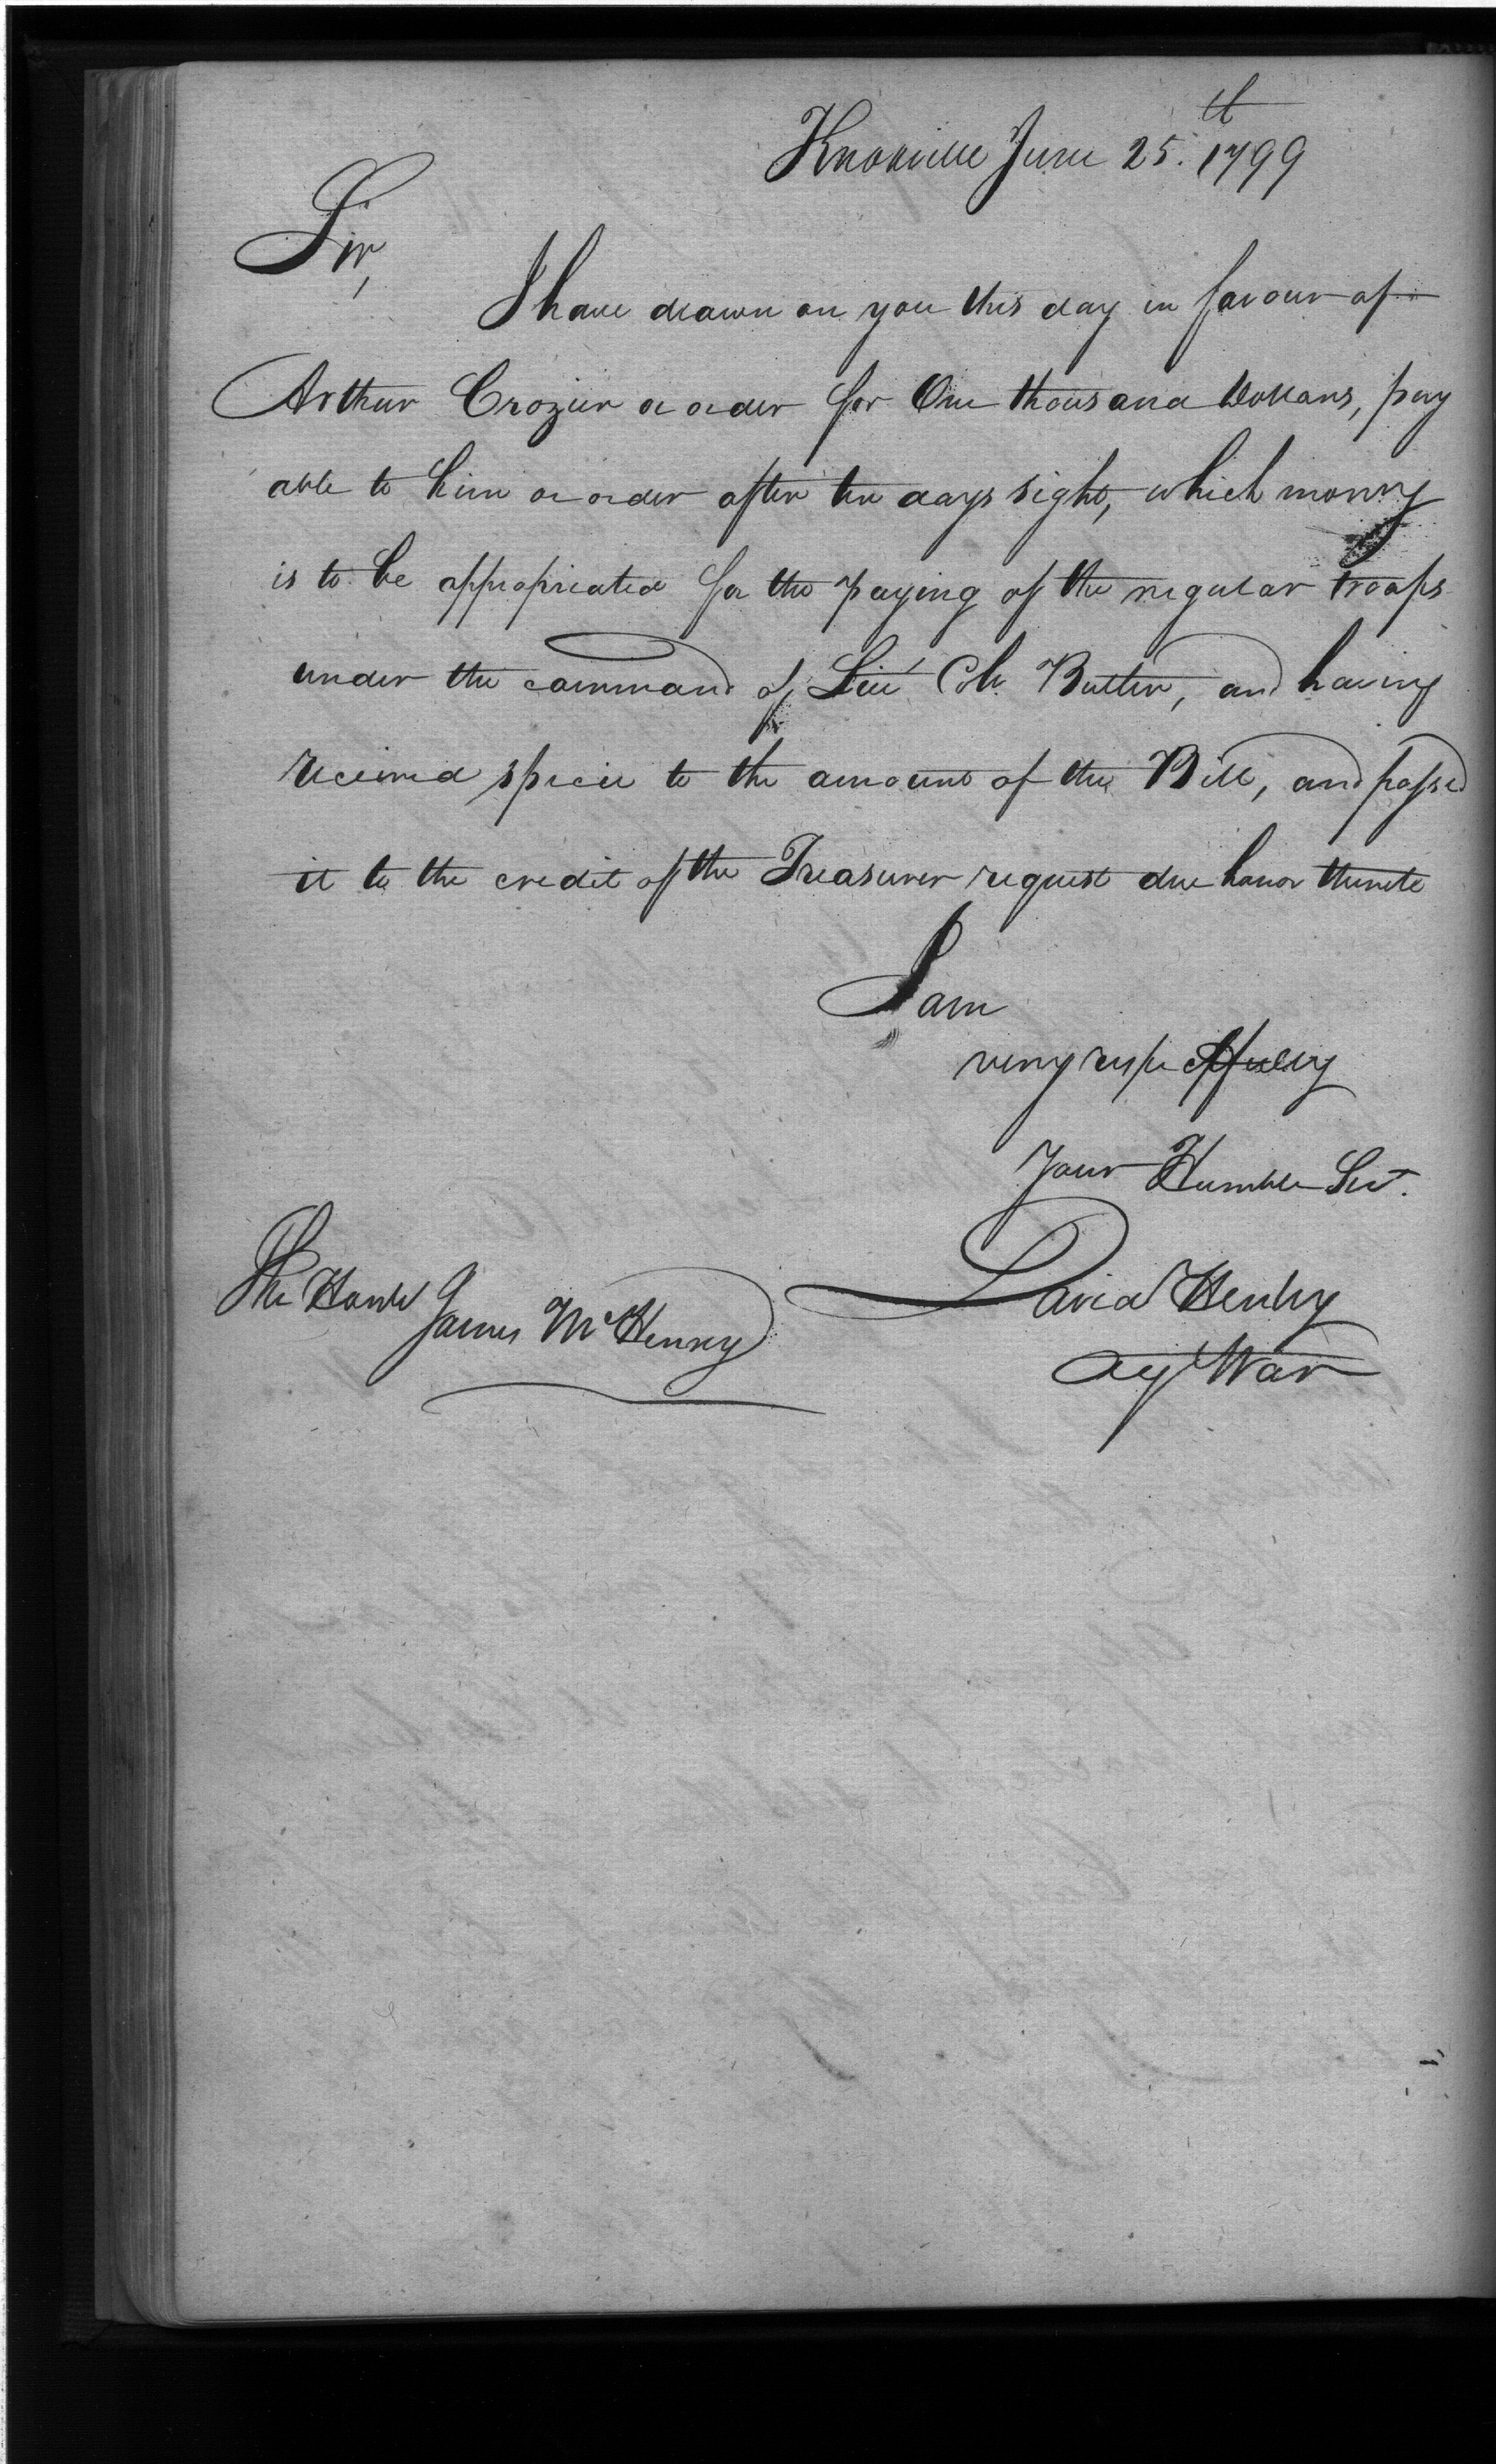 Knoxville June 25.th 1799
Sir,
I have drawn on you this day in favour of
Arthur Crozier or order for One thousand Dollars, pay
able to him or order after ten days sight, which money
is to be appropriated for the paying of the regular troops
under the command of Lieut Colo. Butler, and having
received specie to the amount of the Bill, and passed
it to the credit of the Treasurer request due honor thereto
I am
very respectfully
Your Humble Sert.
The Honble James McHenry
David Henley
Ag War